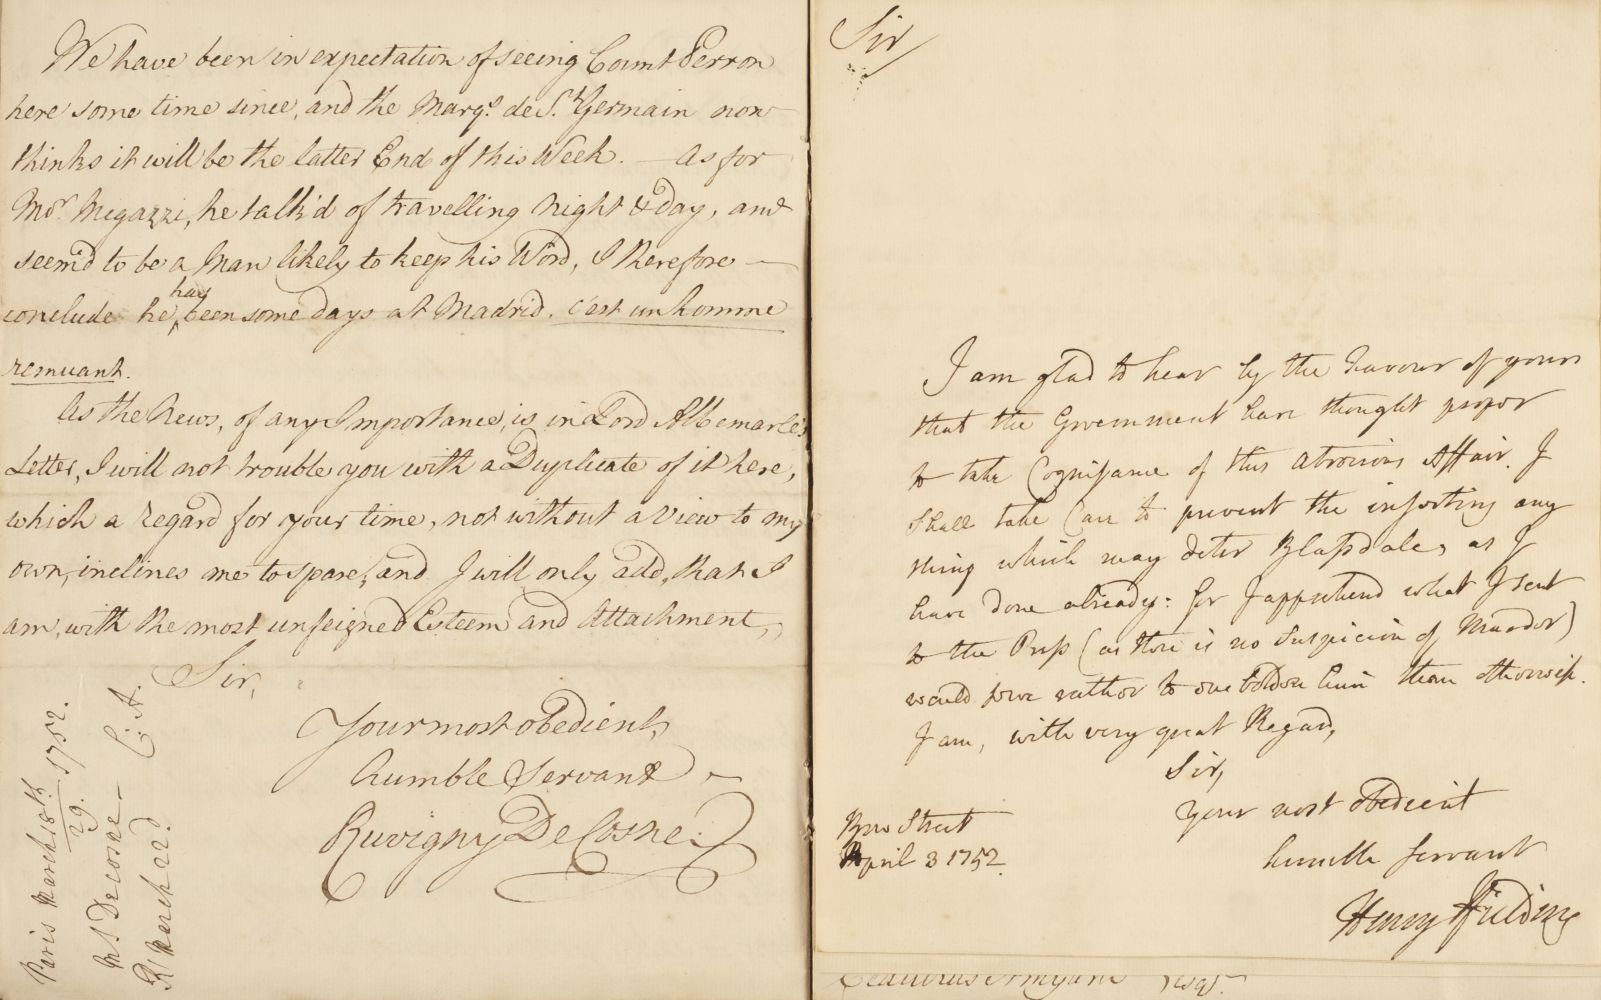 We have been in expectation of seeing Count Perron
here some time since, and the Marqs. de St. Germain now
thinks it will be the latter End of this Week. — As for
Mor. Megazzi, he talk'd of travelling night & day, and
seem'd to be a Man likely to keep his Word, I therefore —
conclude he has been some days at Madrid. c'est un homme
remuant.
As the News, of any Importance, is in Lord Albemarle's
Letter, I will not trouble you with a Duplicate of it here,
which a regard for your time, not without a view to my
own, inclines me to spare, and I will only add, that I
am, with the most unfeigned Esteem and Attachment,
Sir,
Your most obedient,
humble Servant
Ruvigny De Cosne.
Paris March 18th/29. 1752.
Mr Decosne —
R/ March 22d. C. A.
Sir
I am glad to hear by the Favour of yours
that the Government have thought proper
to take Cognisance of this atrocious Affair. I
shall take Care to prevent the inserting any
thing which may deter Blapdale, as I
have done already: for I apprehend what I sent
to the Press (as there is no Suspicion of Murder)
would serve rather to embolden him than otherwise.
I am, with very great Regard,
Sir,
Your most obedient
humble servant
Henry Ffielding
Bow Street
April 3 1752.
Claudius Amyand Esqr.